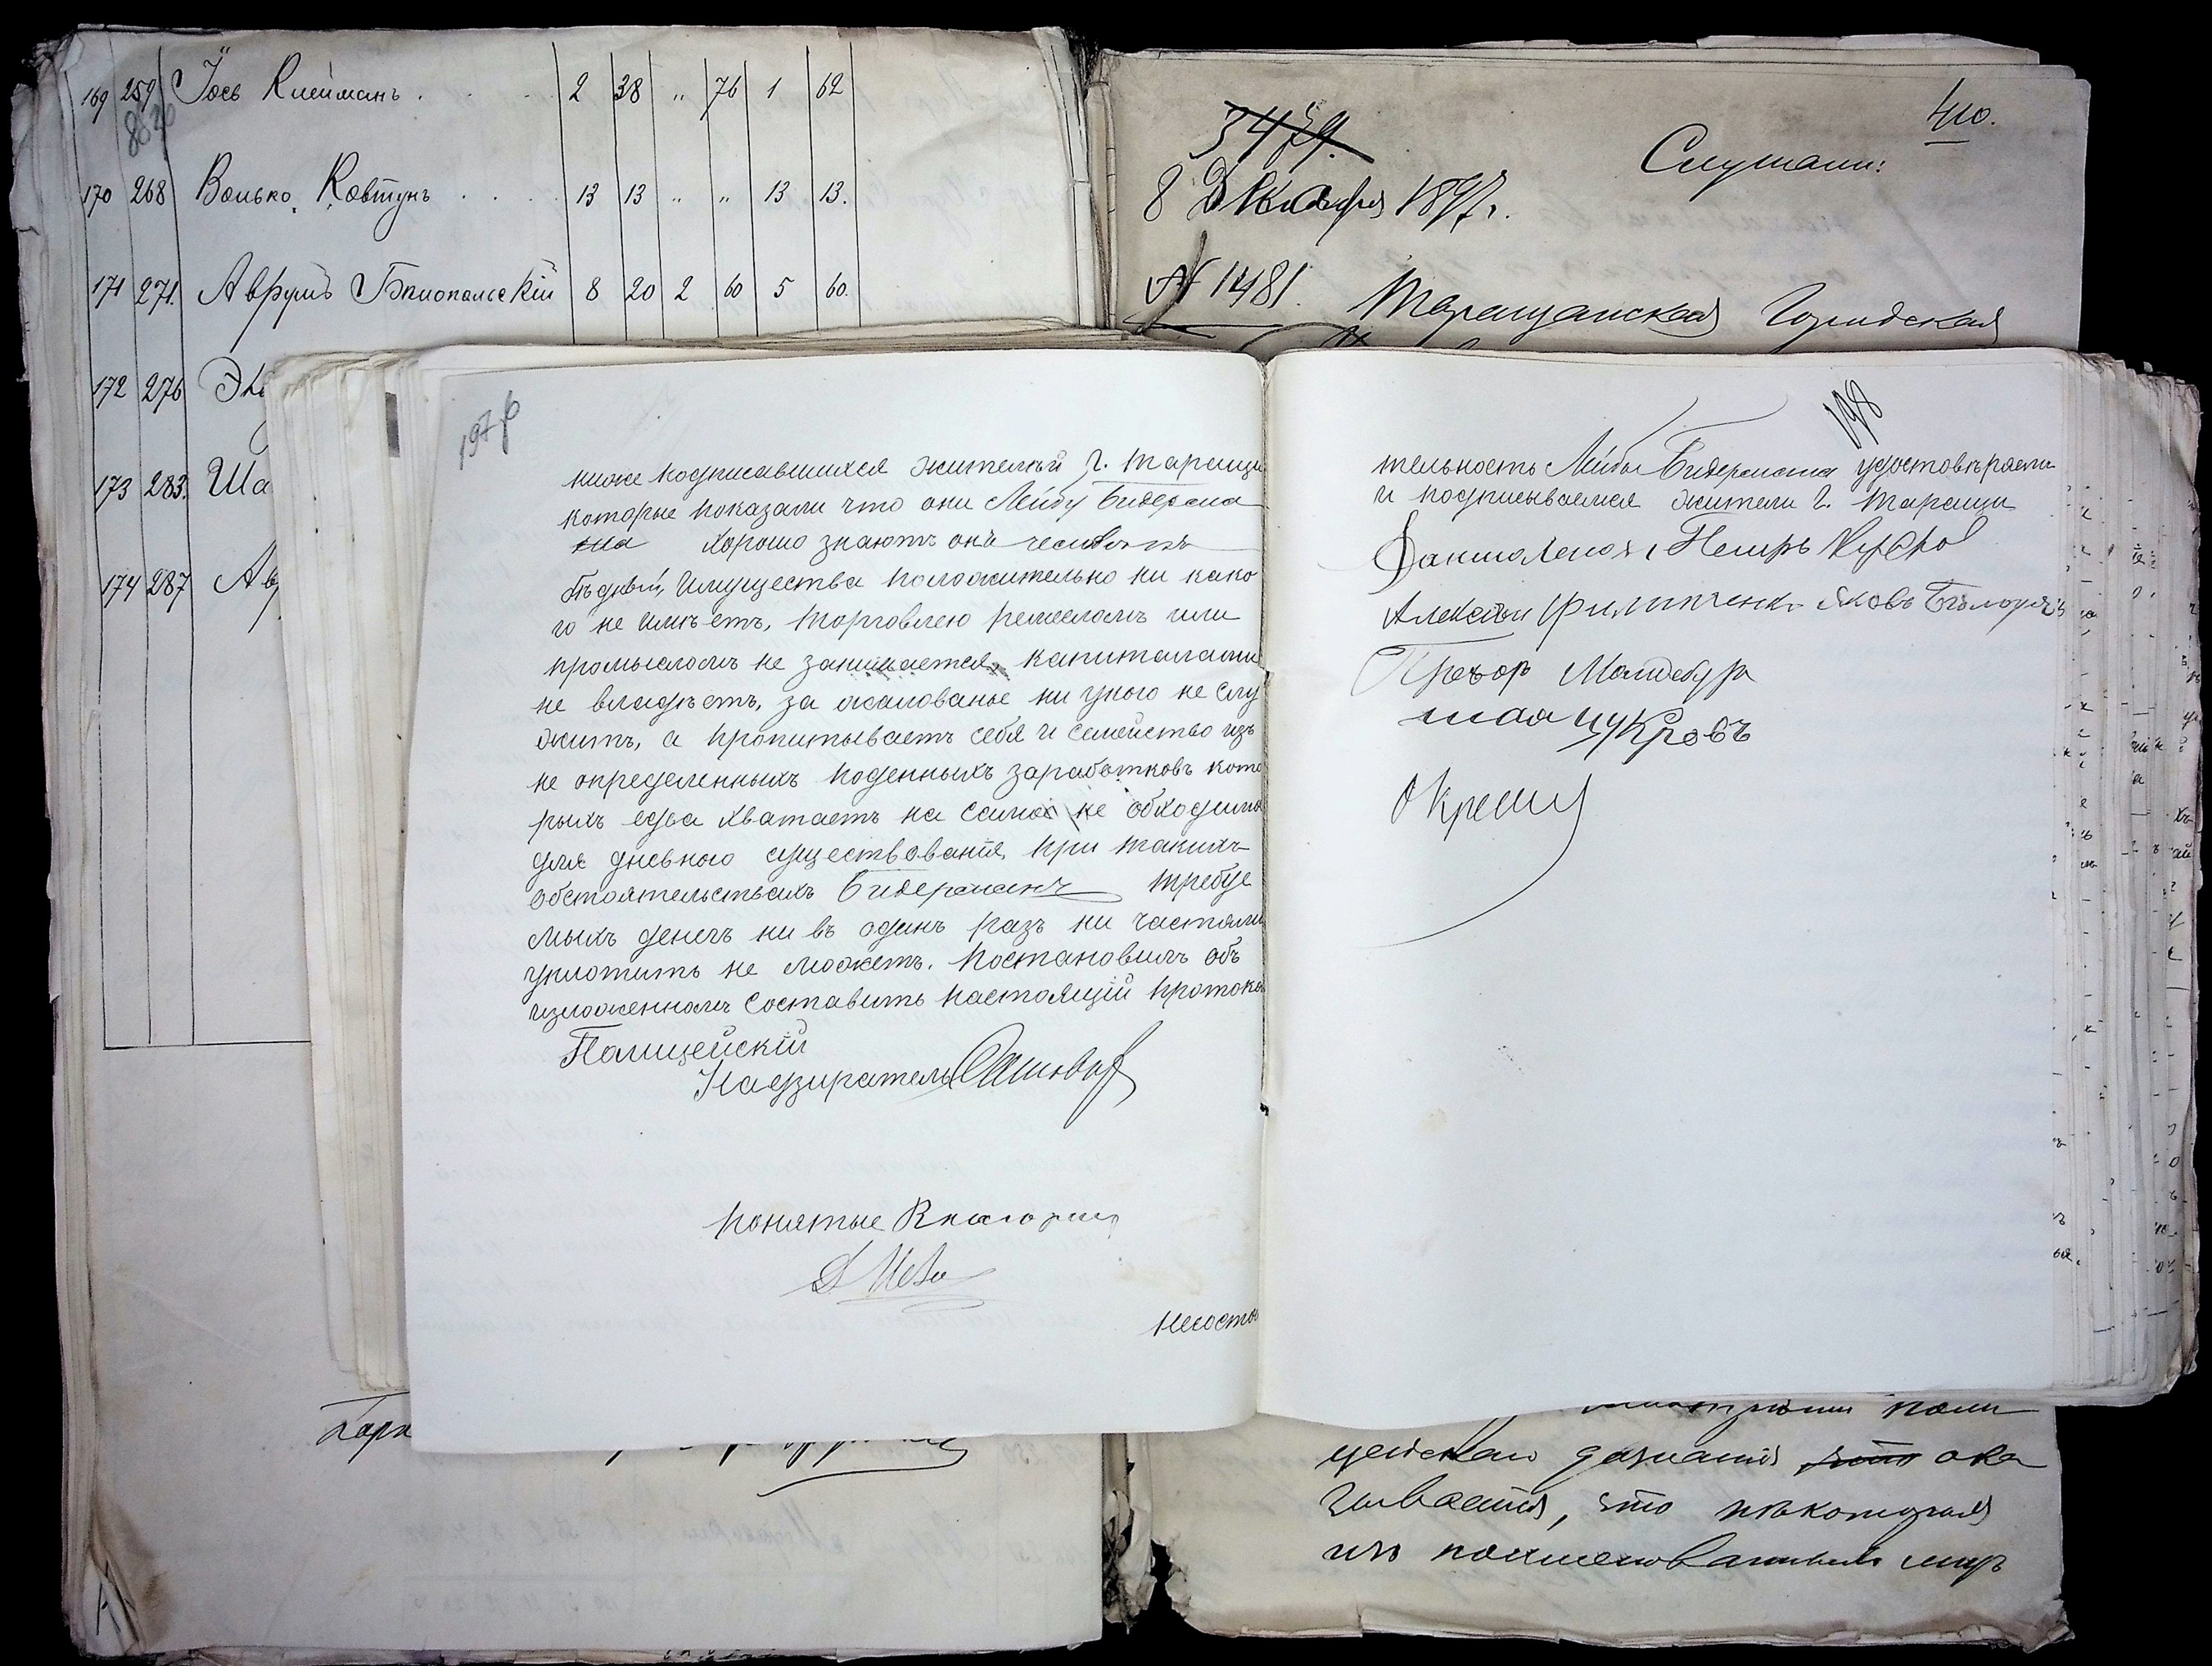 169 259 Іось Клейманъ . . . 2 38 „ 76 1 62
170 268 Волько Ковтунъ . . . 13 13 „ „ 13 13.
171 271. Аврумъ Бялопольскій 8 20 2 60 5 60.
172 276
173 283. Ша
174 287 Ав
410.
Слушали:
8 Декабря 1897 г.
№ 1481.
Таращанская Городская
197
ниже подписавшихся жителей г. Таращи
которые показали что они Лейбу Бидерма
на хорошо знаютъ онъ человекъ
бѣдный, имущества положительно ни како
го не имѣетъ, торговлею ремесломъ или
промысломъ не занимается, капиталами
не владѣетъ, за жалованье ни укого не слу
житъ, а пропитываетъ себя и семейство изъ
не определенныхъ поденныхъ заработковъ кото
рыхъ едва хватаетъ на самое не обходимо
для дневного существованія, при такихъ
обстоятельствахъ Бидерманъ требуе
мыхъ денегъ ни въ одинъ разъ ни частями
уплотить не можетъ. Постановилъ объ
изложенномъ составить настоящій протоко
Полицейскій
Надзиратель
понятые
Несосто
198
тельность Лейбы Бидермана удостовѣряем
и подписываемся жители г. Таращи
Петръ
Алексѣй Яковъ
Шая Цукровъ
О Кремн
поли
цейскаго дознанія что ока
зывается, что нѣкоторыя
изъ поименованныхъ лицъ